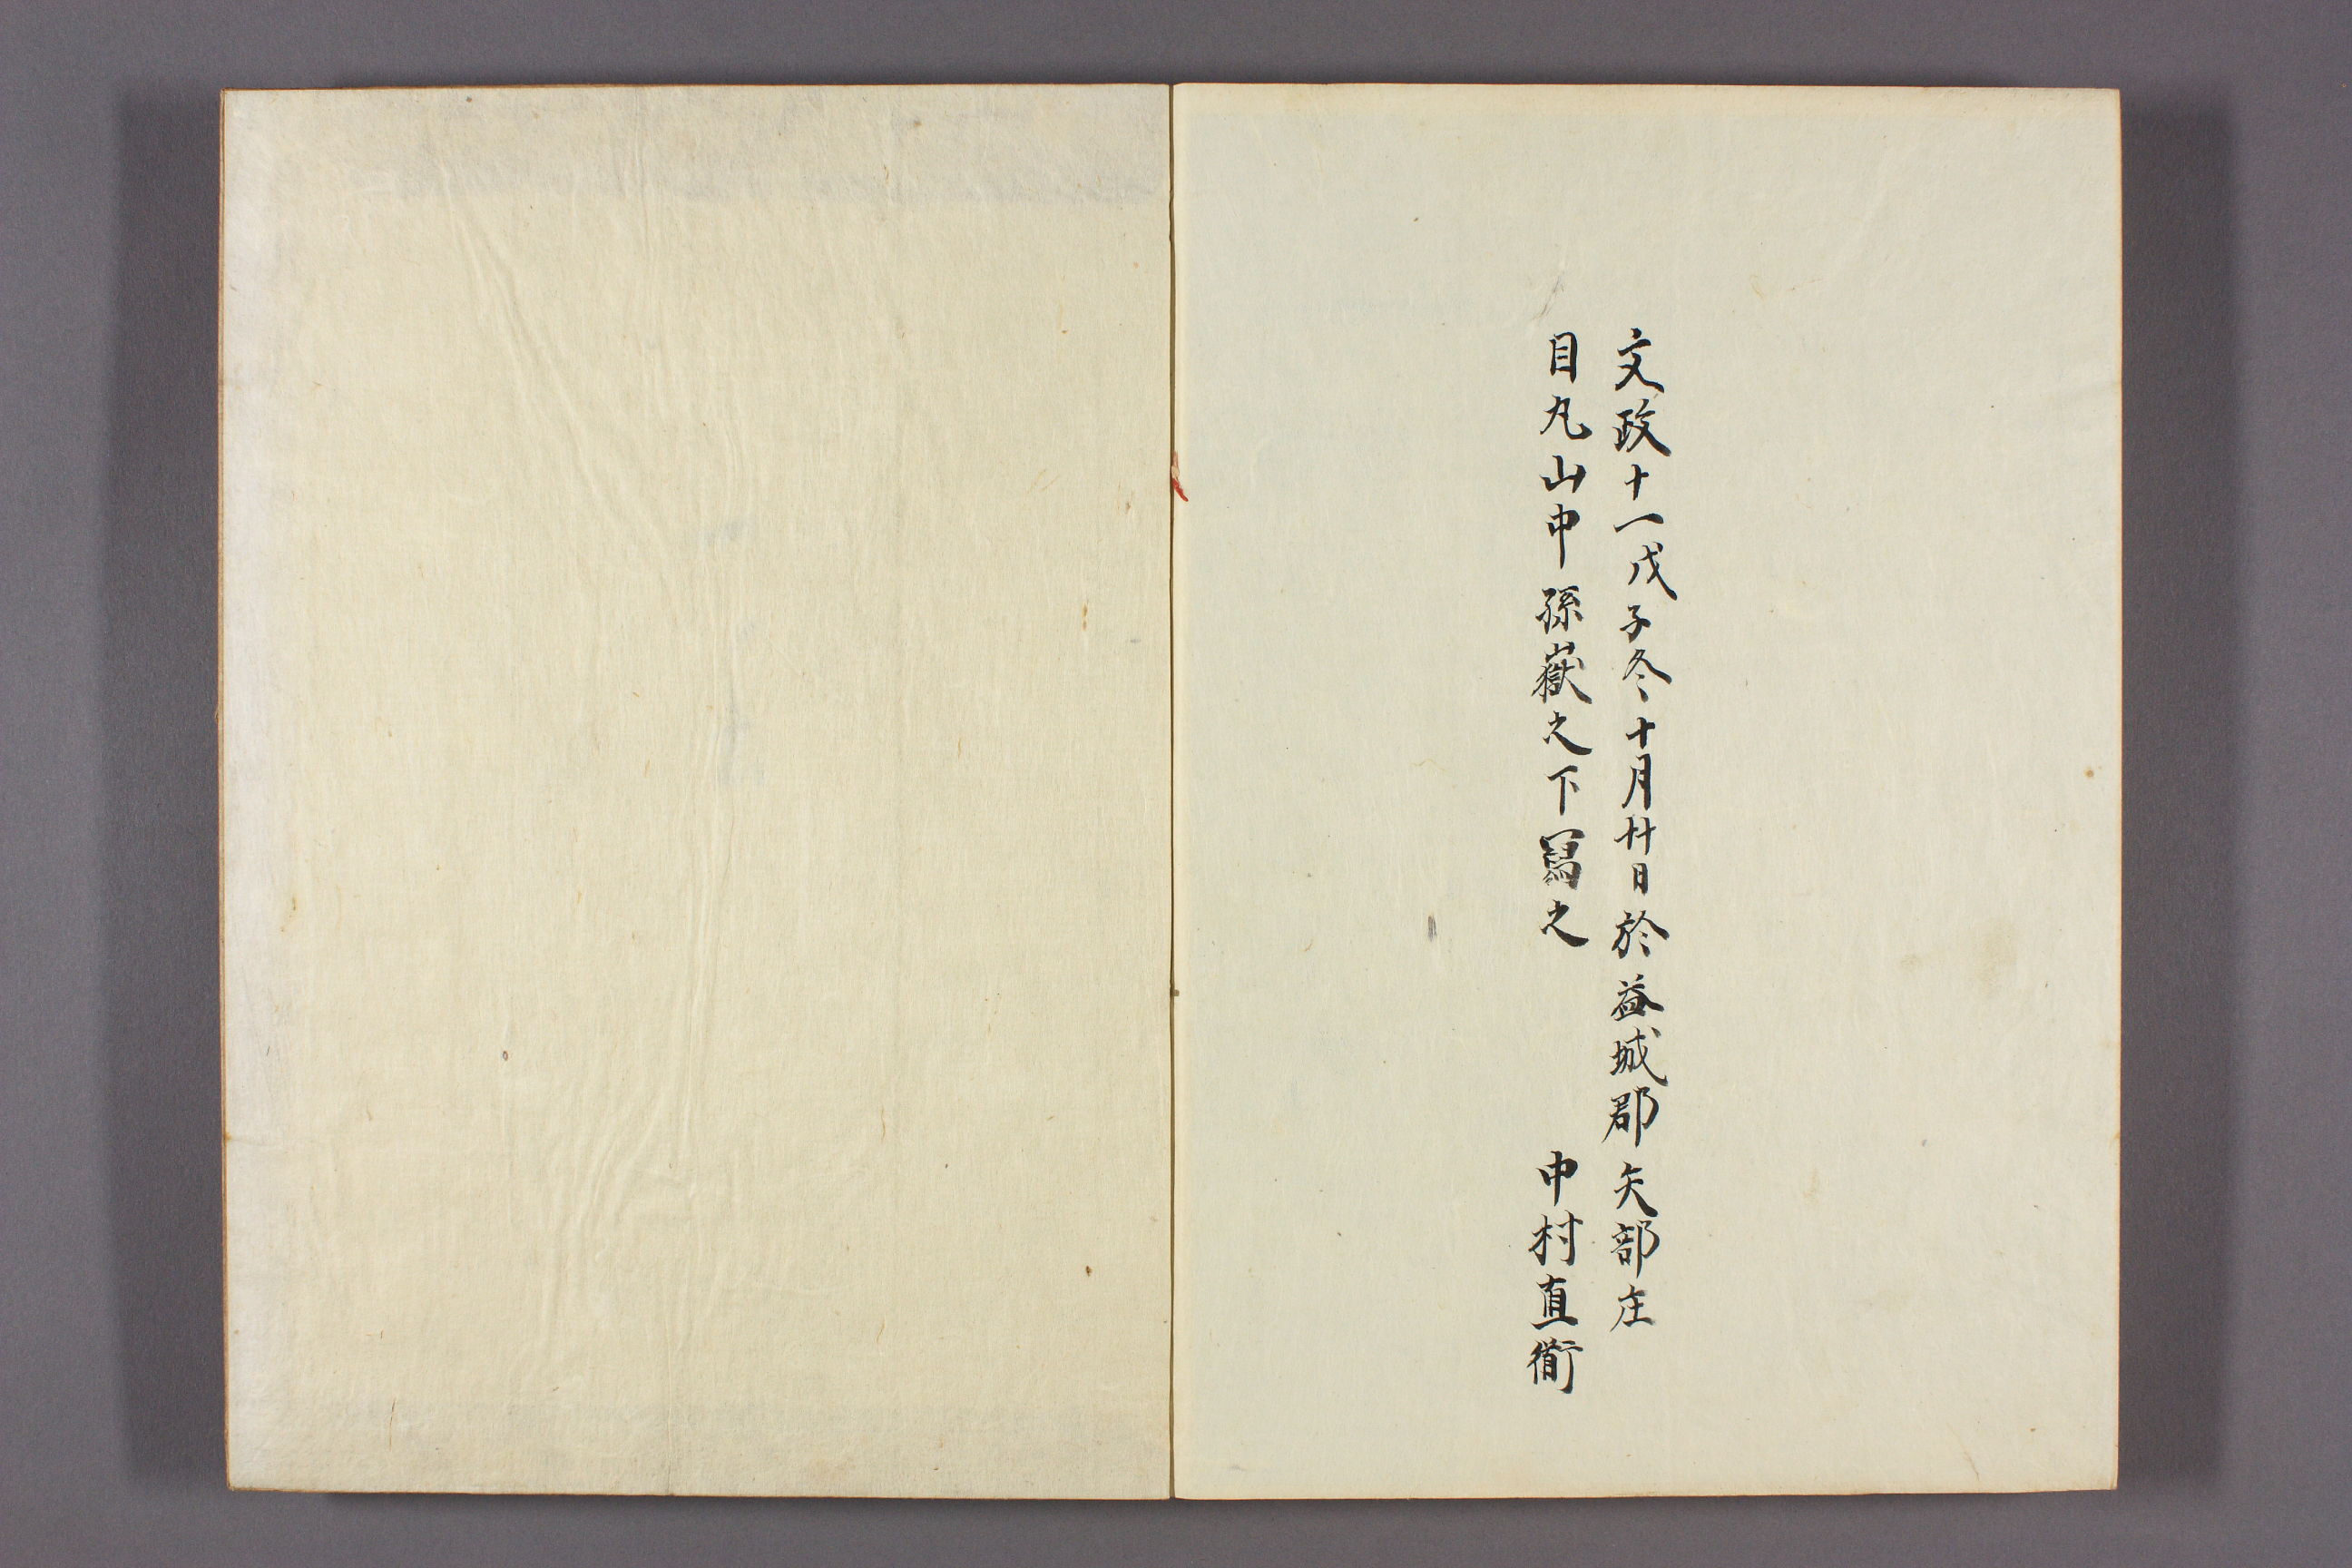 文政十一戊子冬十月廿日於益城郡矢部庄
目丸山中孫嶽之下寫之　中村直衞